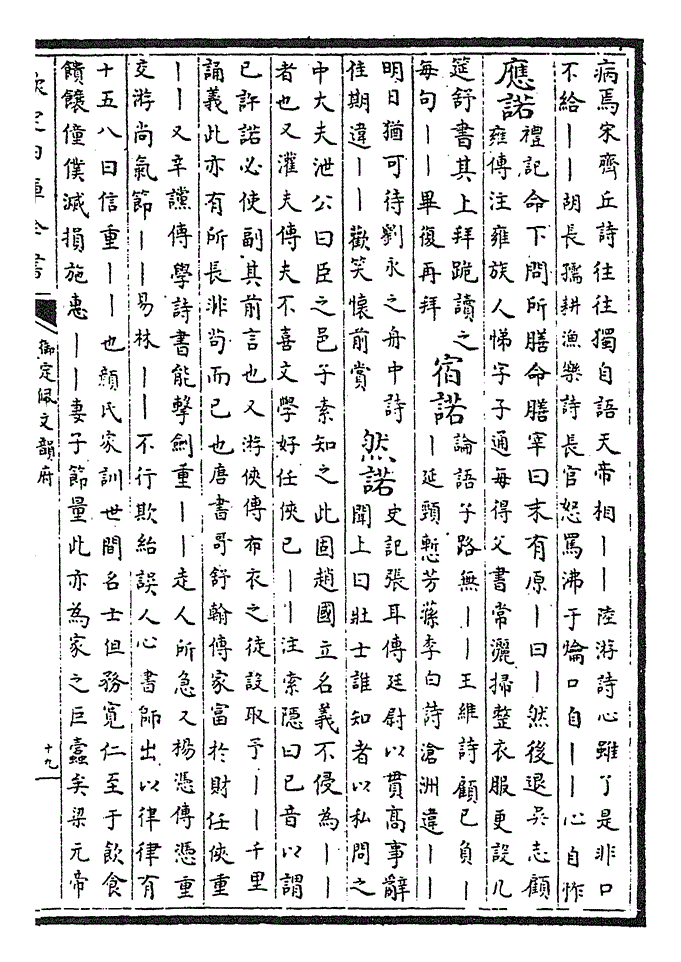 病焉宋齊丘詩往往獨自語天帝相丨丨陸游詩心雖了是非口
不給丨丨胡長孺耕漁樂詩長官怒罵沸于爚口自丨丨心自怍
應諾
禮記命下問所膳命膳宰曰末有原丨曰丨然後退吳志顧
雍傳注雍族人悌字子通每得父書常灑掃整衣服更設几
筵舒書其上拜跪讀之
每句丨丨畢復再拜
宿諾
論語子路無丨丨王維詩顧已負丨
丨延頸慙芳蓀李白詩滄洲違丨丨
明日猶可待劉永之舟中詩
佳期違丨丨歡笑懷前賞
然諾
史記張耳傳廷尉以貫高事辭
聞上曰壯士誰知者以私問之
中大夫泄公曰臣之邑子素知之此固趙國立名義不侵為丨丨
者也又灌夫傳夫不喜文學好任俠已丨丨注索隱曰已音以謂
已許諾必使副其前言也又游俠傳布衣之徒設取予丨丨千里
誦義此亦有所長非苟而已也唐書哥舒翰傳家富於財任俠重
丨丨又辛讜傳學詩書能擊劍重丨丨走人所急又楊憑傳憑重
交游尚氣節丨丨易林丨丨不行欺紿誤人心書師出以律律有
十五八曰信重丨丨也顏氏家訓世間名士但務寬仁至于飲食
饋饟僮僕減損施惠丨丨妻子節量此亦為家之巨蠹矣梁元帝
欽定四庫全書
御定佩文韻府
十九